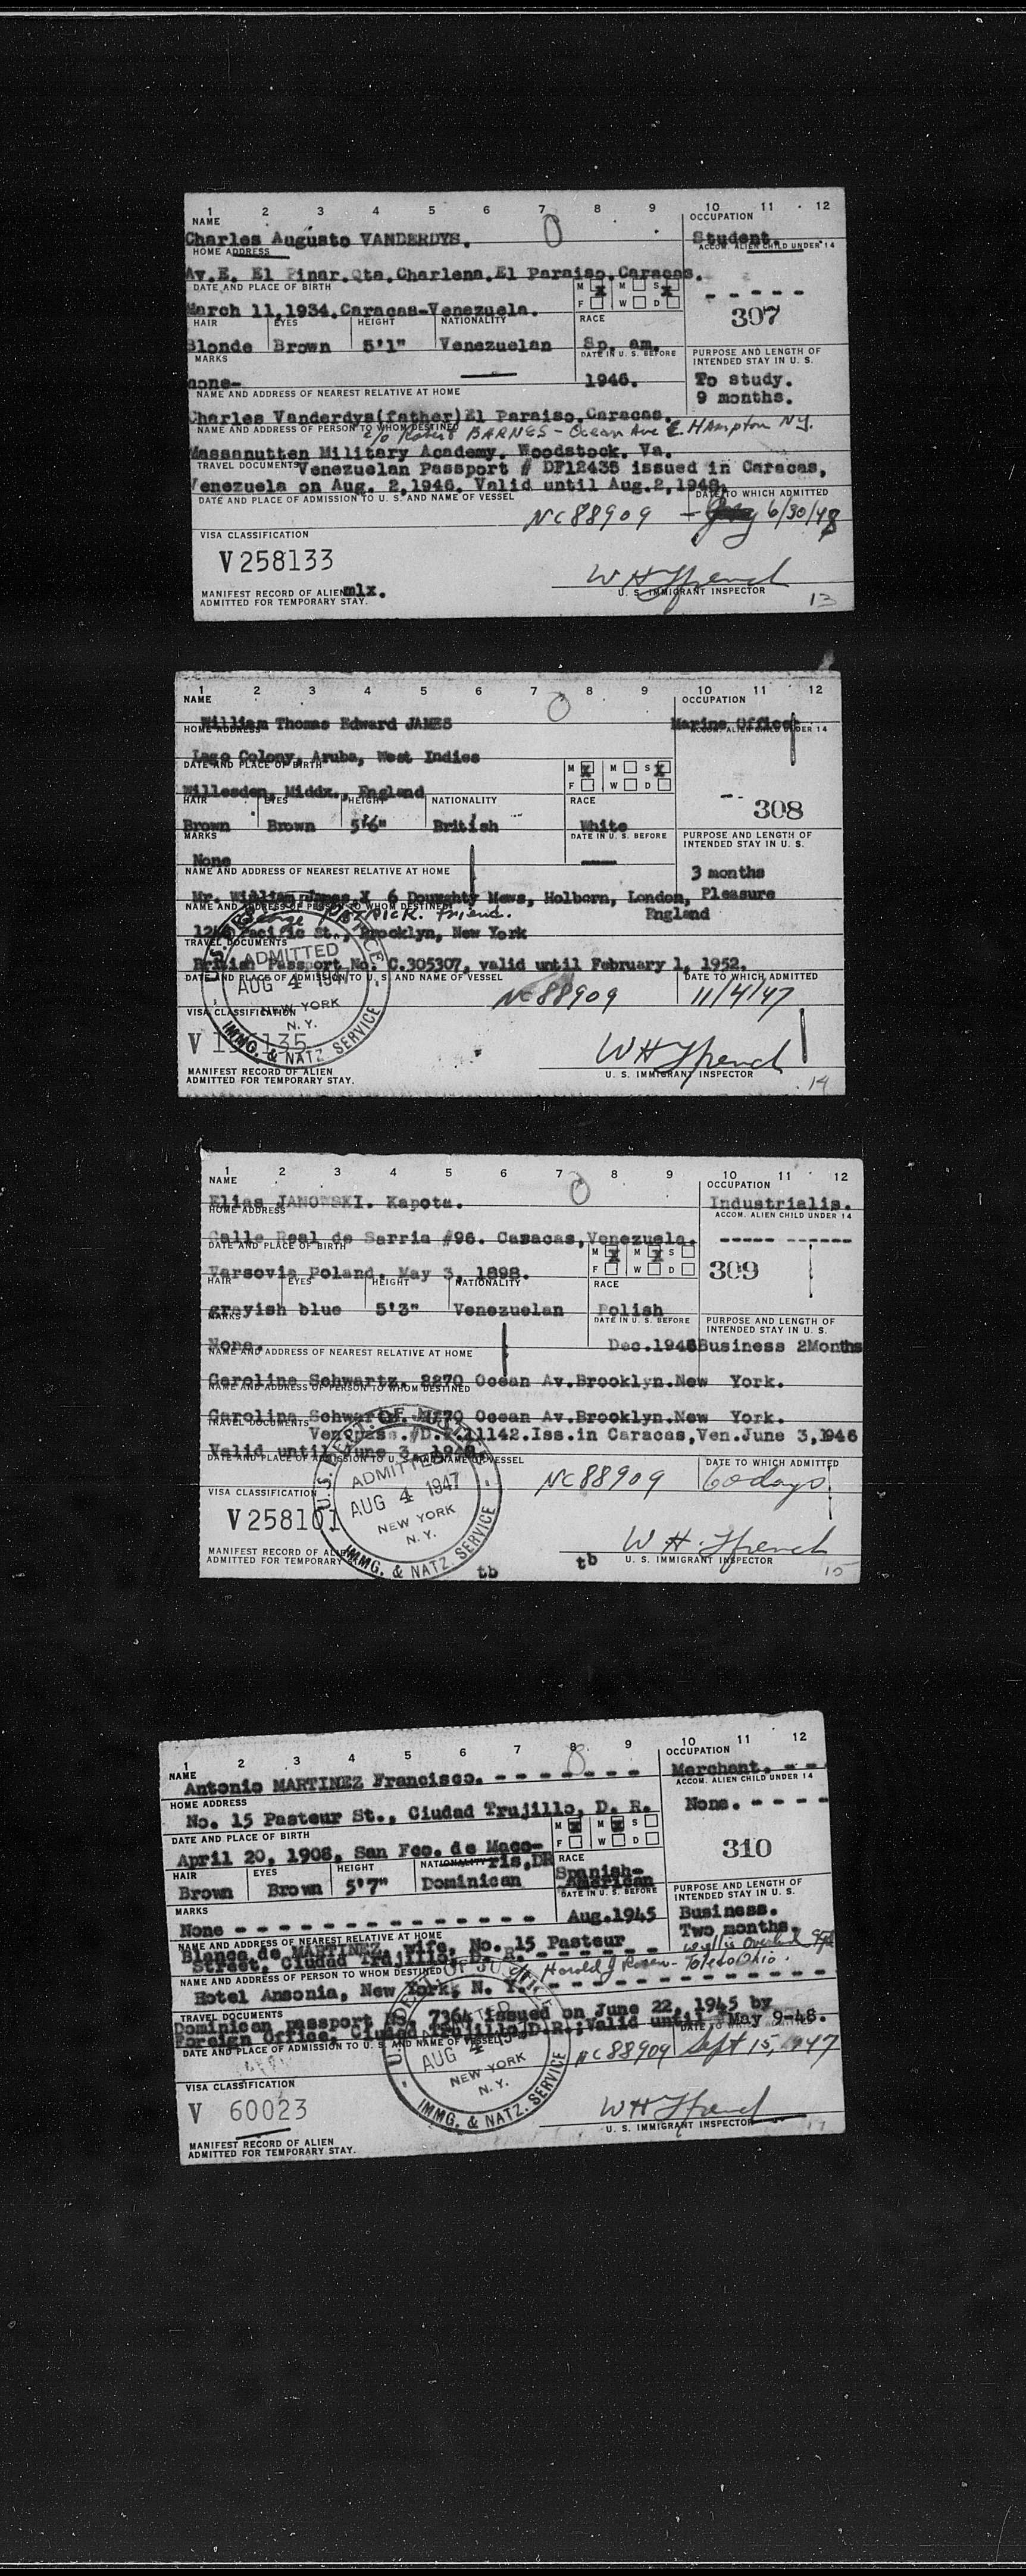 1 2 3 4 5 6 7 8 9 10 11 12
NAME OCCUPATION
Charles Augusto VANDERDYS. Student.
HOME ADDRESS ACCOM. ALIEN CHILD UNDER 14
Av.E. El Pinar.Qta.Charlena.El Paraiso.Caracas.
DATE AND PLACE OF BIRTH M X M S X - - - - -
March 11,1934.Caracas-Venezuela. F W D 307
HAIR EYES HEIGHT NATIONALITY RACE
Blonde Brown 5'1" Venezuelan Sp. am.
MARKS DATE IN U. S. BEFORE PURPOSE AND LENGTH OF INTENDED STAY IN U. S.
none- 1946. To study.
9 months.
NAME AND ADDRESS OF NEAREST RELATIVE AT HOME
Charles Vanderdys(father)El Paraiso.Caracas.
NAME AND ADDRESS OF PERSON TO WHOM DESTINED
c/o Robert BARNES - Ocean Ave E. HAmpton NY.
Massanutten Military Academy. Woodstock. Va.
TRAVEL DOCUMENTS Venezuelan Passport # DF12435 issued in Caracas,
Venezuela on Aug. 2,1946. Valid until Aug.2,1948.
DATE AND PLACE OF ADMISSION TO U. S. AND NAME OF VESSEL DATE TO WHICH ADMITTED
NC88909 - 6/30/48
VISA CLASSIFICATION
V 258133
MANIFEST RECORD OF ALIEN mlx.
ADMITTED FOR TEMPORARY STAY. U. S. IMMIGRANT INSPECTOR
13
1 2 3 4 5 6 7 8 9 10 11 12
NAME OCCUPATION
William Thomas Edward JAMES Marine Officer
HOME ADDRESS ACCOM. ALIEN CHILD UNDER 14
Lago Colony, Aruba, West Indies
DATE AND PLACE OF BIRTH M X M S X
Willesden, Middx., England F W D 308
HAIR EYES HEIGHT NATIONALITY RACE
Brown Brown 5'6" British White
MARKS DATE IN U. S. BEFORE PURPOSE AND LENGTH OF INTENDED STAY IN U. S.
None
NAME AND ADDRESS OF NEAREST RELATIVE AT HOME 3 months
Mr. William James X 6 Doughty Mews, Holborn, London, Pleasure
England
NAME AND ADDRESS OF PERSON TO WHOM DESTINED
George Friend.
Pacific St., Brooklyn, New York
TRAVEL DOCUMENTS
British Passport No. C.305307, valid until February 1, 1952.
DATE AND PLACE OF ADMISSION TO U. S. AND NAME OF VESSEL DATE TO WHICH ADMITTED
NC88909 11/4/47
ADMITTED
AUG 4 1947
NEW YORK
N. Y.
IMMG. & NATZ. SERVICE
VISA CLASSIFICATION
V
MANIFEST RECORD OF ALIEN
ADMITTED FOR TEMPORARY STAY. U. S. IMMIGRANT INSPECTOR
14
1 2 3 4 5 6 7 8 9 10 11 12
NAME OCCUPATION
Elias JANOWSKI. Kapota. Industrialis.
HOME ADDRESS ACCOM. ALIEN CHILD UNDER 14
Calle Real de Sarria #96. Caracas,Venezuela.
DATE AND PLACE OF BIRTH M X M X S
Varsovia Poland. May 3, 1898. F W D 309
HAIR EYES HEIGHT NATIONALITY RACE
grayish blue 5'3" Venezuelan Polish
MARKS DATE IN U. S. BEFORE PURPOSE AND LENGTH OF INTENDED STAY IN U. S.
None. Dec.1946 Business 2Months
NAME AND ADDRESS OF NEAREST RELATIVE AT HOME
Caroline Schwartz. 2270 Ocean Av.Brooklyn.New York.
NAME AND ADDRESS OF PERSON TO WHOM DESTINED
Carolina Schwartz. 2270 Ocean Av.Brooklyn.New York.
TRAVEL DOCUMENTS Ven.pass.#D. 11142.Iss.in Caracas,Ven.June 3,1946
Valid until June 3, 1948.
DATE AND PLACE OF ADMISSION TO U. S. AND NAME OF VESSEL DATE TO WHICH ADMITTED
NC88909 60 days
ADMITTED
AUG 4 1947
NEW YORK
N. Y.
IMMG. & NATZ. SERVICE
VISA CLASSIFICATION
V 258101
MANIFEST RECORD OF ALIEN
ADMITTED FOR TEMPORARY tb tb U. S. IMMIGRANT INSPECTOR
15
1 2 3 4 5 6 7 8 9 10 11 12
NAME OCCUPATION
Antonio MARTINEZ Francisco. - - - - - - - Merchant. - - -
HOME ADDRESS ACCOM. ALIEN CHILD UNDER 14
No. 15 Pasteur St., Ciudad Trujillo, D. R. None. - - - -
DATE AND PLACE OF BIRTH M X M X S
April 20, 1908, San Fco. de Maco- F W D 310
ris,DR
HAIR EYES HEIGHT NATIONALITY RACE
Brown Brown 5'7" Dominican Spanish-
American
MARKS DATE IN U. S. BEFORE PURPOSE AND LENGTH OF INTENDED STAY IN U. S.
None - - - - - - - - - - - - - Aug.1945 Business.
Two months.
NAME AND ADDRESS OF NEAREST RELATIVE AT HOME
Blanca de MARTINEZ, wife, No. 15 Pasteur
Street, Ciudad Trujillo, D. R. - - - - - -
Willis Overland
NAME AND ADDRESS OF PERSON TO WHOM DESTINED c/o Harold J Rosen - Toledo Ohio.
Hotel Ansonia, New York, N. Y. - - - - - - - - - - -
TRAVEL DOCUMENTS
Dominican passport No. 7364 issued on June 22, 1945 by
Foreign Office, Ciudad Trujillo,D.R.;Valid until May 9-48.
DATE AND PLACE OF ADMISSION TO U. S. AND NAME OF VESSEL
NC88909 Sept 15, 1947
AUG 4
NEW YORK
N. Y.
IMMG. & NATZ. SERVICE
VISA CLASSIFICATION
V 60023
MANIFEST RECORD OF ALIEN
ADMITTED FOR TEMPORARY STAY. U. S. IMMIGRANT INSPECTOR